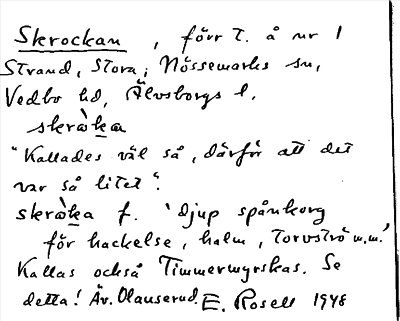 Skrockan, förr T. å nr 1
Strand, Stora, Nössemarks sn,
Vedbo hd, Älvsborgs l.
skràka
"Kallades väl så, därför att det
var så litet".
skràka f. 'djup spånkorg
för hackelse, halm, torvströ m.m.'
Kallas också Timmermyrskas. Se
detta! Äv. Olauserud. E. Rosell 1948